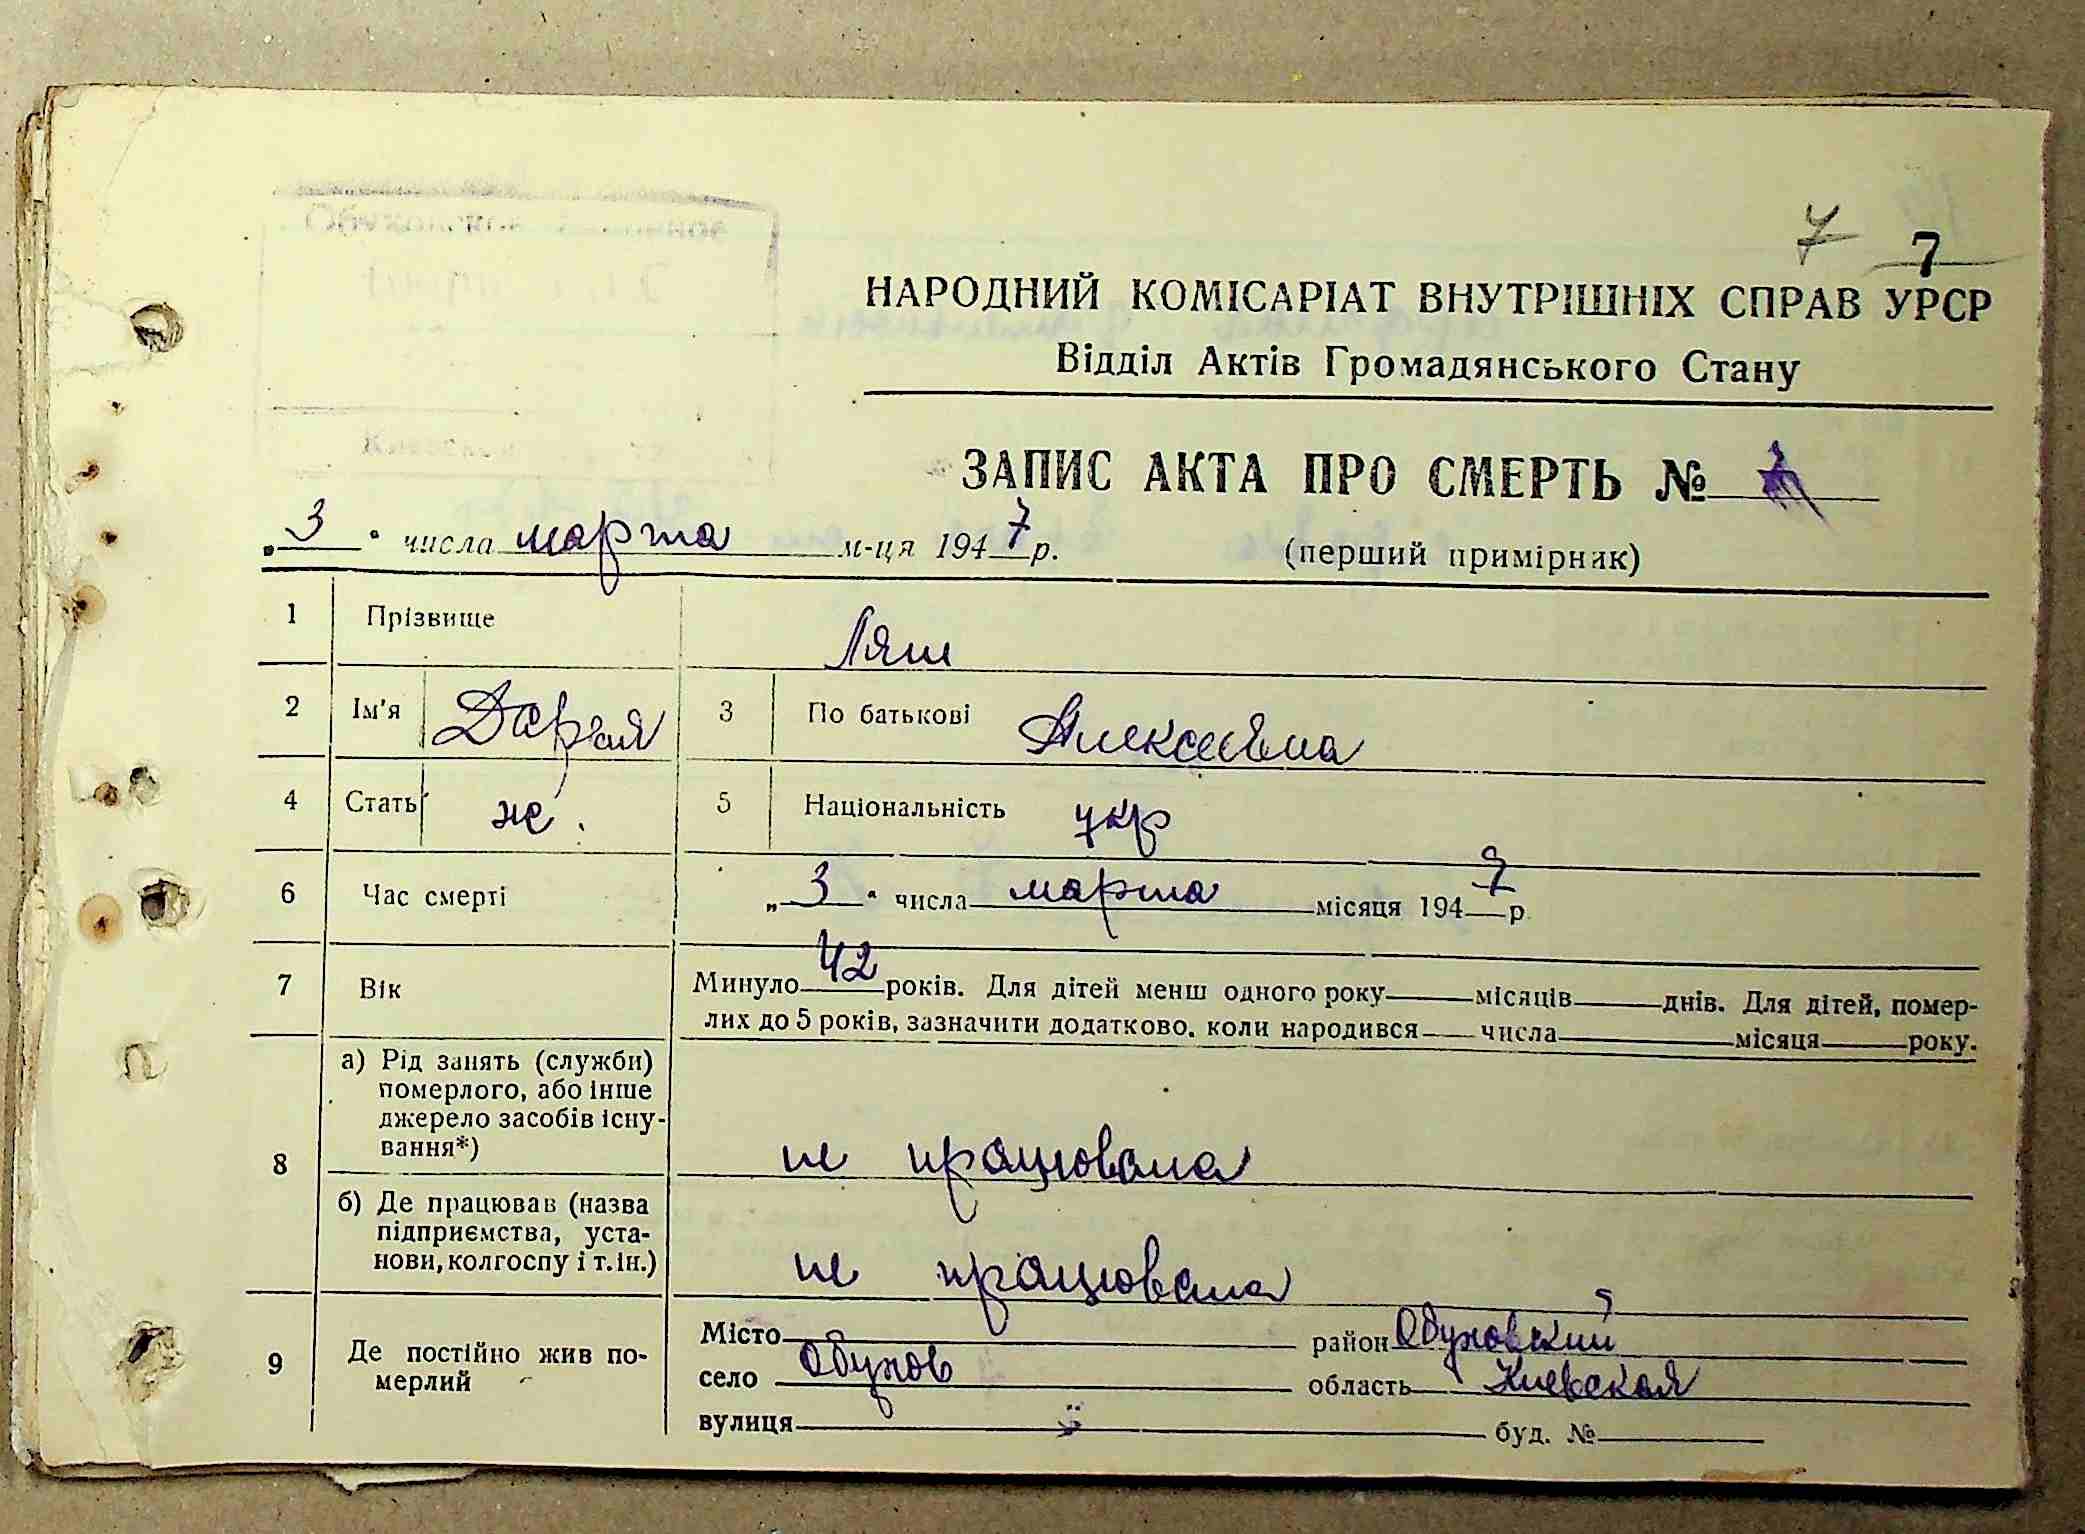 7 7
НАРОДНИЙ КОМІСАРІАТ ВНУТРІШНІХ СПРАВ УРСР
Відділ Актів Громадянського Стану
ЗАПИС АКТА ПРО СМЕРТЬ №
„3“ числа марта м-ця 1947 р. (перший примірник)
1 Прізвище Ляш
2 Ім'я Дарья 3 По батькові Алексеевна
4 Стать же. 5 Національність укр
6 Час смерті „3“ числа марта місяця 1947 р.
7 Вік Минуло 42 років. Для дітей менш одного року місяців днів. Для дітей, помер-
лих до 5 років, зазначити додатково. коли народився числа місяця року.
8 а) Рід занять (служби)
померлого, або інше
джерело засобів існу-
вання*) не працювала
б) Де працював (назва
підприємства, уста-
нови, колгоспу і т. ін.) не працювала
9 Де постійно жив по-
мерлий
Місто район Обуховский
село Обухов область Киевская
вулиця буд. №